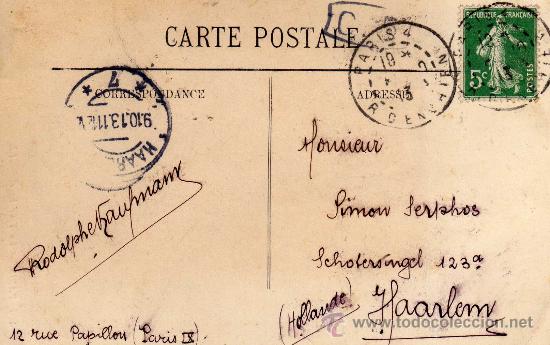 CARTE POSTALE
CORRESPONDANCE
ADRESSE
REPUBLIQUE FRANÇAISE
5c
POSTES
PARIS 4
R. D'ENGHIEN
9.10.13.11
HAAR
7
Monsieur
Simon Serphos
Schotersingel 123a
(Hollande) Haarlem
Rodolphe Kaufmann
12 rue Papillon (Paris IX)
© www.todocoleccion.net